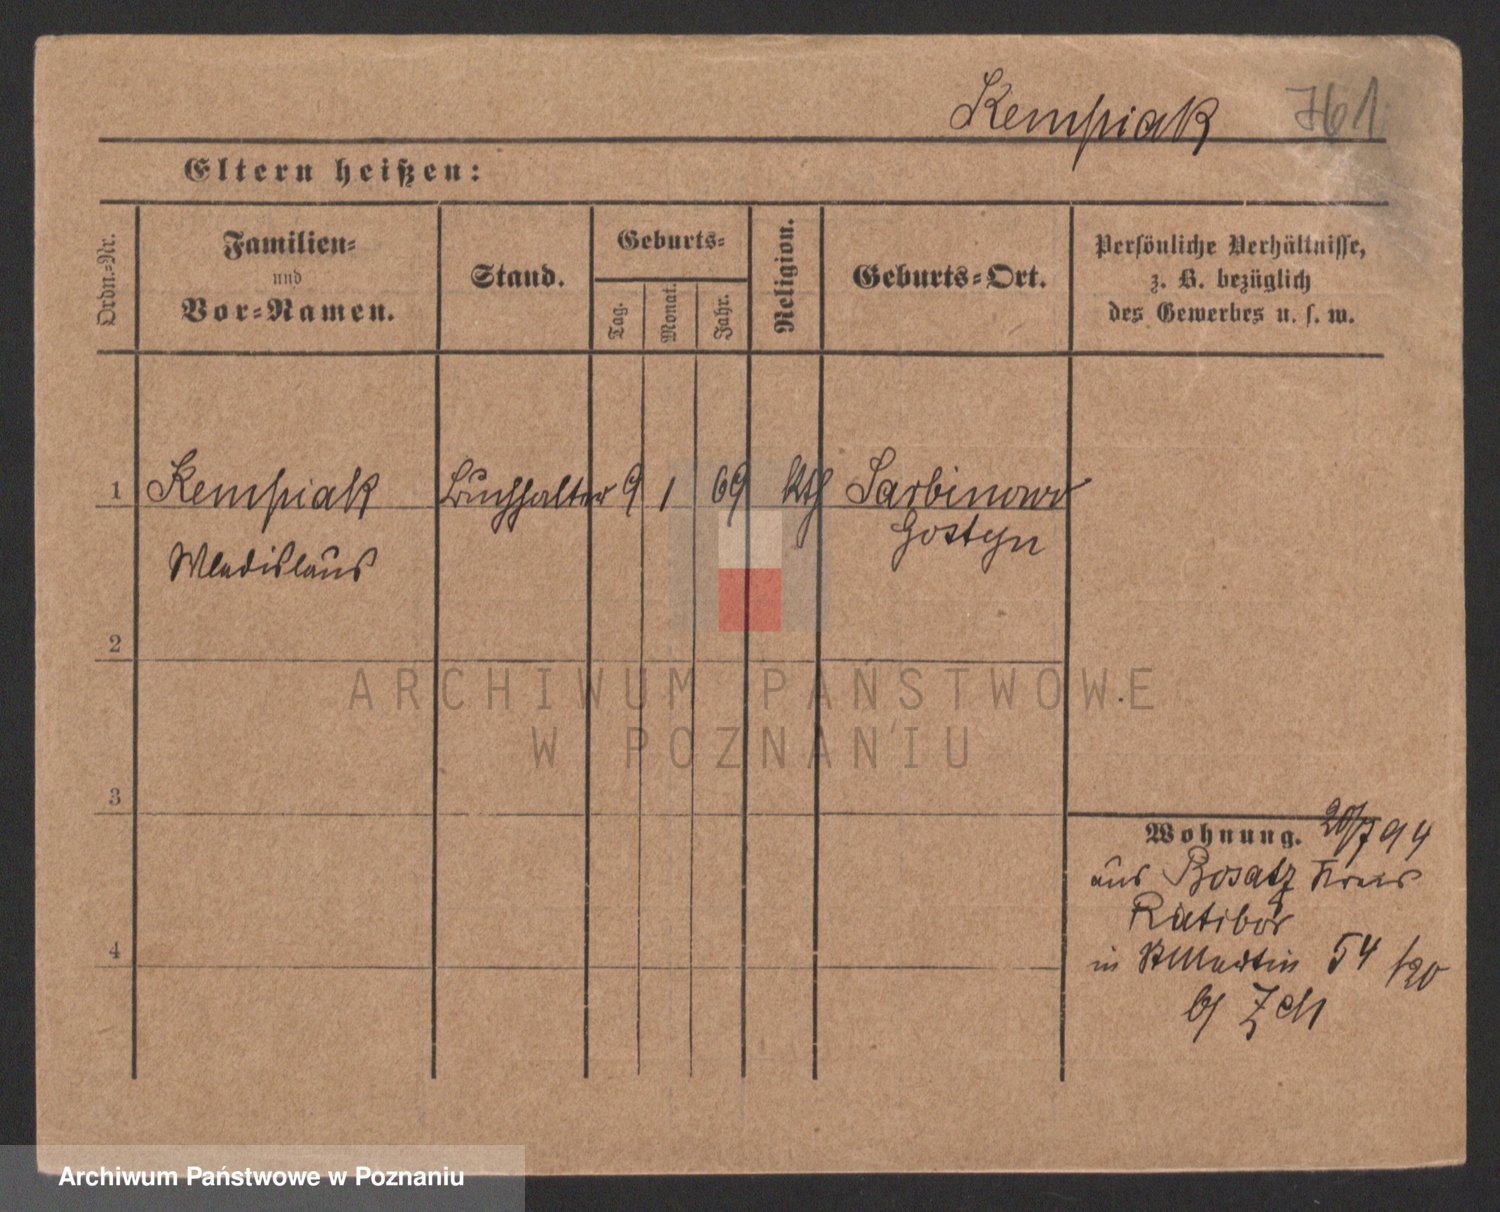 Kempiak 761
Eltern heißen:
Ordn.-Nr.
Familien-
und
Vor-Namen.
Stand.
Geburts-
Tag.
Monat.
Jahr.
Religion.
Geburts-Ort.
Persönliche Verhältnisse,
z. B. bezüglich
des Gewerbes u. s. w.
1 Kempiak Buchhalter 9 1 69 kth Sarbinowo
Gostyn
Wladislaus
2
ARCHIWUM PAŃSTWOWE
W POZNANIU
3
Wohnung. 20/7 94
aus Bosatz Kreis
Ratibor
in St Martin 54
4
b/
Archiwum Państwowe w Poznaniu